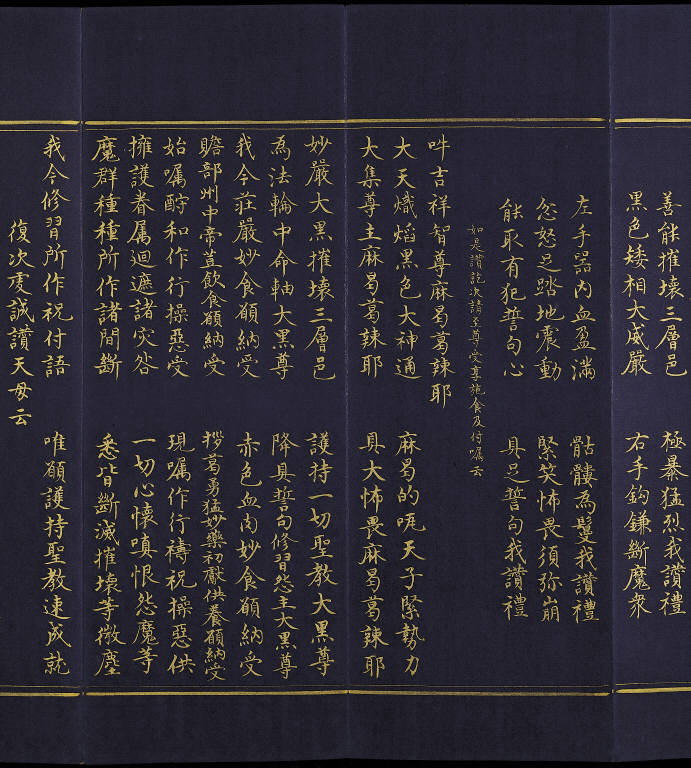 善能摧壞三層邑　極暴猛烈我讚禮
黑色矮相大威嚴　右手鈎鎌斷魔衆
左手器內血盈滿　骷髏為鬘我讚禮
忿怒足踏地震動　緊笑怖畏須弥崩
能取有犯誓句心　具足誓句我讚禮
如是讚訖次請至尊受享施食及付嘱云
吽吉祥智尊麻曷葛辣耶
大天熾焰黑色大神通　麻曷的呢天子緊勢力
大集尊主麻曷葛辣耶　具大怖畏麻曷葛辣耶
妙嚴大黑摧壞三層邑　護持一切聖教大黑尊
為法輪中命軸大黑尊　降具誓句修習怨主大黑尊
我今莊嚴妙食願納受　赤色血肉妙食願納受
贍部州中帝葢飲食願納受　拶葛勇猛妙藥初獻供養願納受
始嘱酹和作行操惡受　現嘱作行禱祝操惡供
擁護眷属迴遮諸灾咎　一切心懷嗔恨怨魔等
魔群種種所作諸間斷　悉皆斷滅摧壞等微塵
我今修習所作祝付語　唯願護持聖教速成就
復次虔誠讚天母云